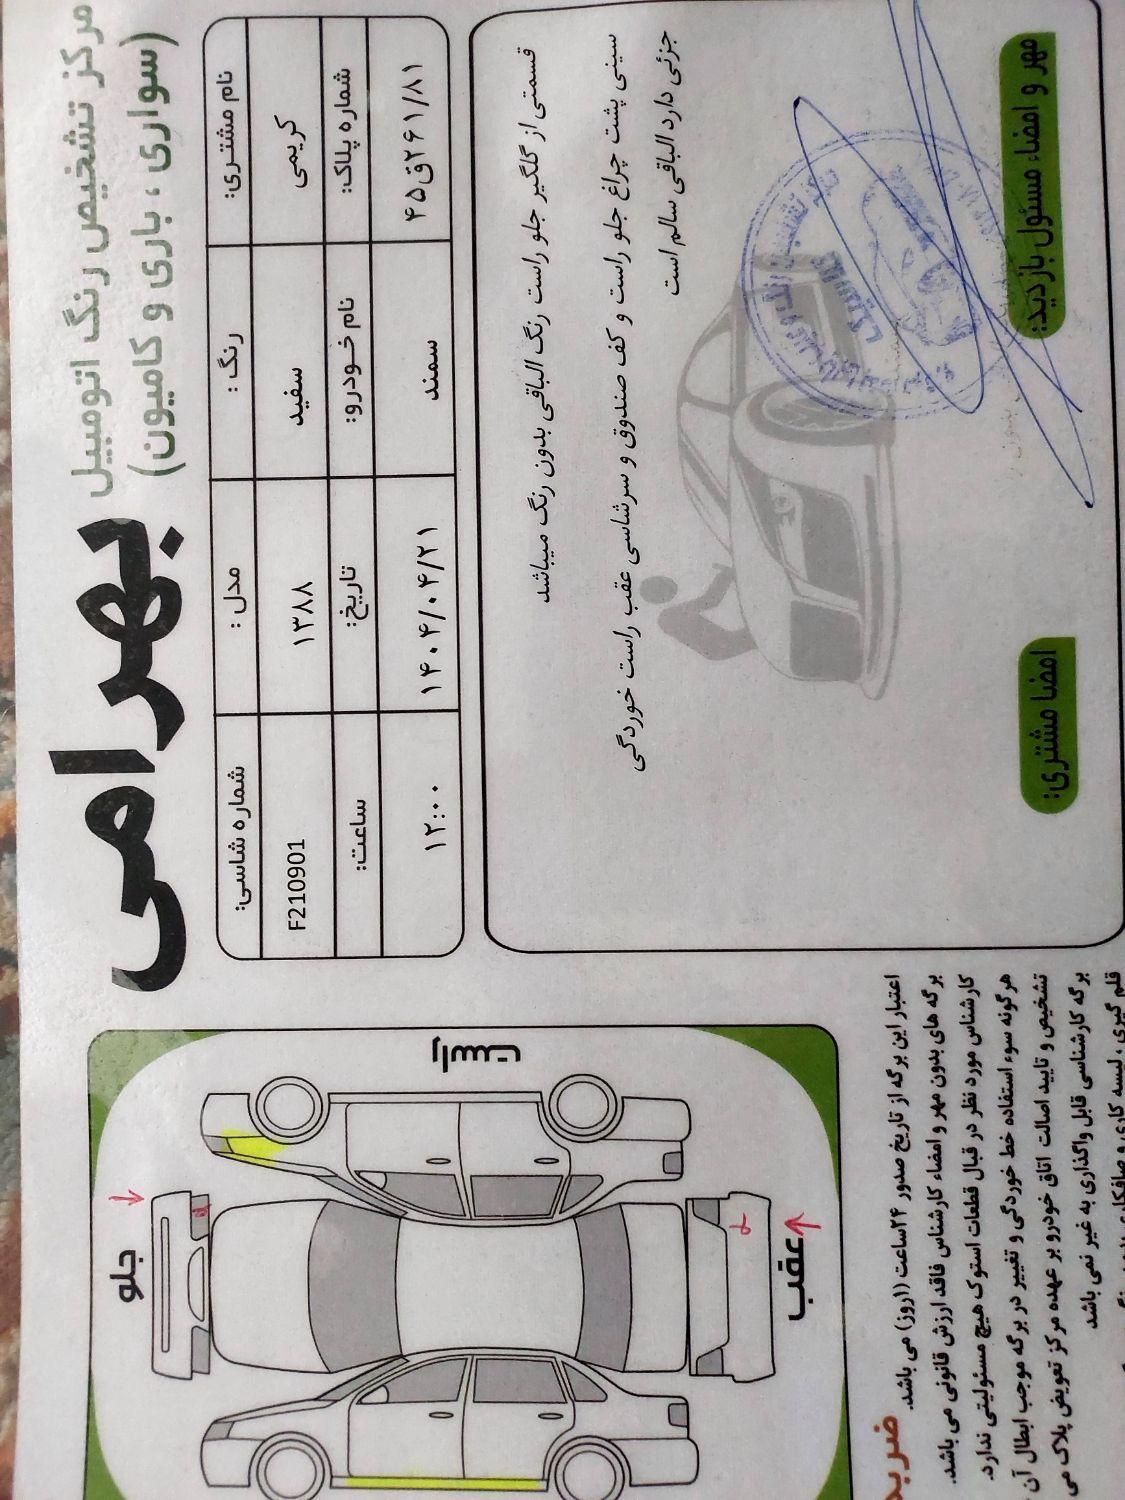 بهرامی
مرکز تشخیص رنگ اتومبیل
(سواری ، باری و کامیون)
نام مشتری: رنگ : مدل : شماره شاسی:
کریمی سفید ۱۳۸۸ F210901
شماره پلاک: نام خودرو: تاریخ: ساعت:
۴۵ق۲۶۱/۸۱ سمند ۱۴۰۴/۰۴/۲۱ ۱۲:۰۰
قسمتی از گلگیر جلو راست رنگ الباقی بدون رنگ میباشد
سینی پشت چراغ جلو راست و کف صندوق و سرشاسی عقب راست خوردگی
جزئی دارد الباقی سالم است
مهر و امضاء مسئول بازدید:
امضا مشتری:
راست
جلو
عقب
اعتبار این برگه از تاریخ صدور ۲۴ساعت (۱روز) می باشد.
برگه های بدون مهر و امضاء کارشناس فاقد ارزش قانونی می باشد.
کارشناس مورد نظر در قبال قطعات استوک هیچ مسئولیتی ندارد.
هرگونه سوء استفاده خط خوردگی و تغییر در برگه موجب ابطال آن
تشخیص و تایید اصالت اتاق خودرو بر عهده مرکز تعویض پلاک می
برگه کارشناسی قابل واگذاری به غیر نمی باشد
قلم گیری ، لیسه کاری و صافکاری